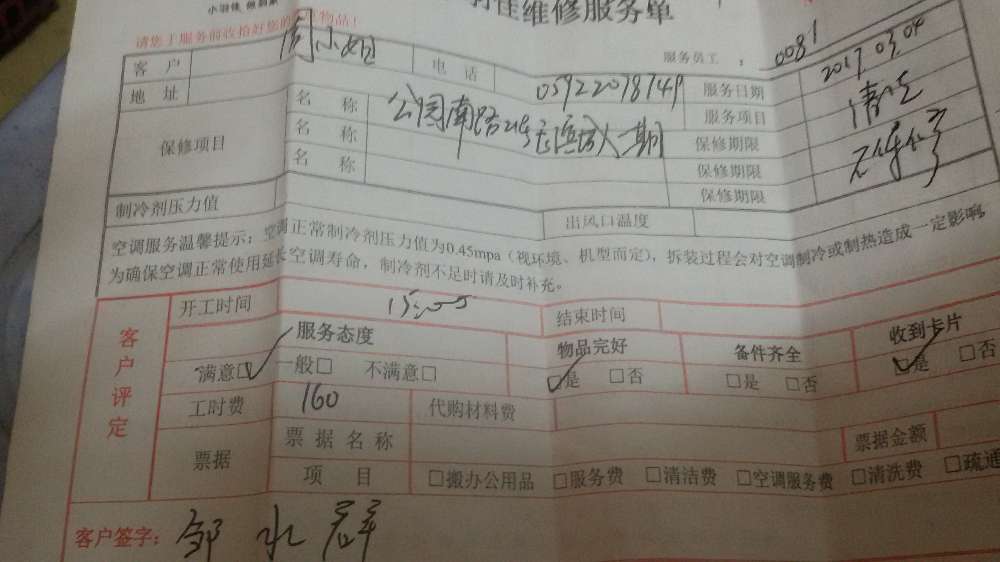 小羽佳 做到家
羽佳维修服务单
请您于服务前收拾好您的物品!
服务员工: 0081
客户 周小姐 电话 05922078749 服务日期 2017.03.04
地址 公园南路 一期 服务项目 清洗
保修项目 名称 保修期限
名称 保修期限
名称 保修期限
制冷剂压力值 出风口温度
空调服务温馨提示:空调正常制冷剂压力值为0.45mpa(视环境、机型而定),拆装过程会对空调制冷或制热造成一定影响,
为确保空调正常使用延长空调寿命,制冷剂不足时请及时补充。
客户评定
开工时间 结束时间
服务态度 物品完好 备件齐全 收到卡片
满意□ 一般□ 不满意□ □是 □否 □是 □否 □是 □否
工时费 160 代购材料费
票据 票据名称 票据金额
项目 □搬办公用品 □服务费 □清洁费 □空调服务费 □清洗费 □疏通
客户签字: 邹水群